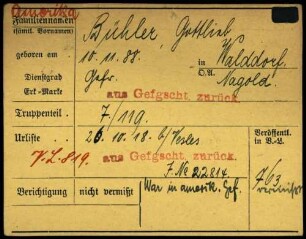 Amerika
Familiennamen Bühler, Gottlieb
(sämtl. Vornamen)
geboren am 10.11.88. in Walddorf
Dienstgrad Gefr. O.A. Nagold.
Erk-Marke aus Gefgscht zurück.
Truppenteil 7/119.
Urliste 26.10.18. b/ Veröffentl.
V.L. 819. aus Gefgscht zurück. in V.-L.
F.No 22814. 763
Berichtigung nicht vermißt War in amerik. Gef. vermisst